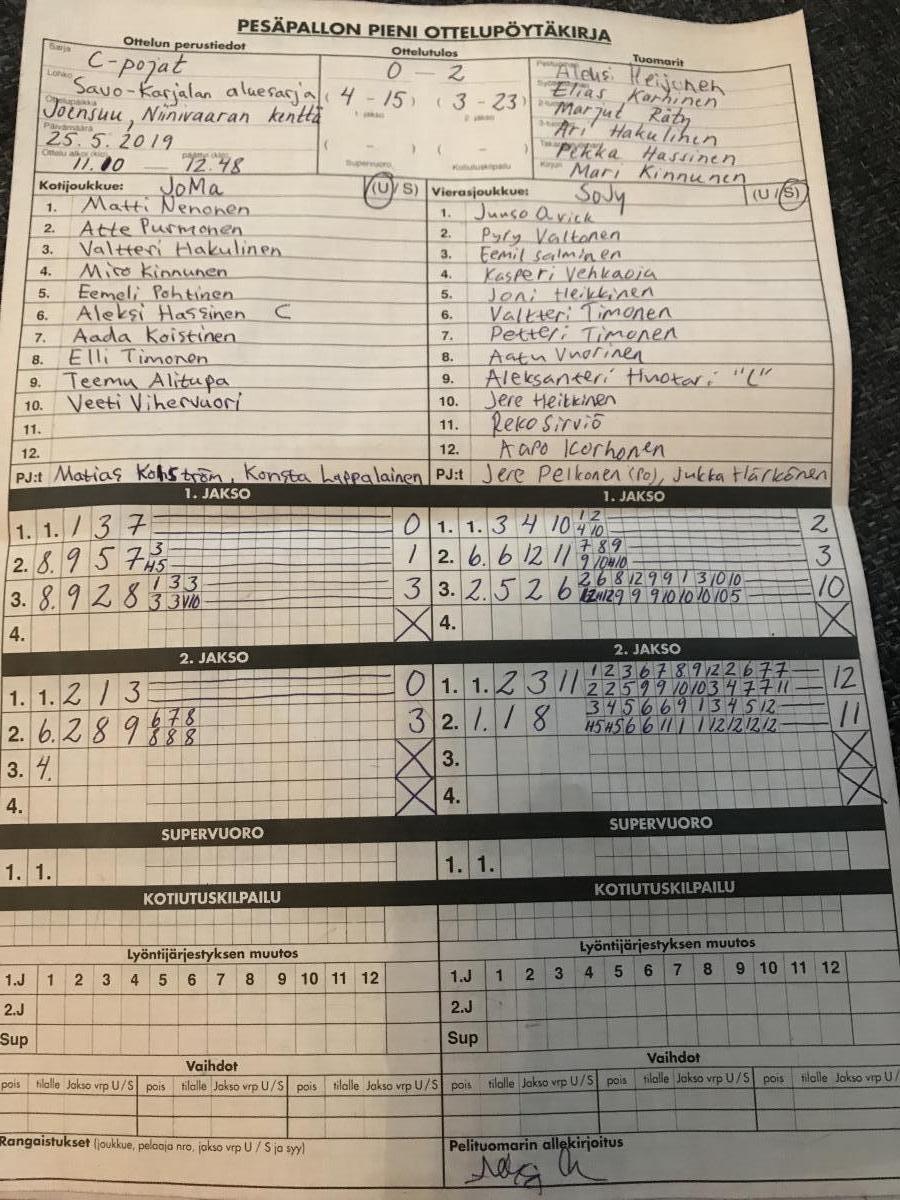 PESÄPALLON PIENI OTTELUPÖYTÄKIRJA
Ottelun perustiedot
Ottelutulos
Tuomarit
Sarja C-pojat
Lohko Savo-Karjalan aluesarja
Ottelupaikka Joensuu, Niinivaaran kenttä
Päivämäärä 25.5.2019
Ottelu alkoi (klo) 11.00 päättyi (klo) 12.48
0 - 2
(4 - 15) (3 - 23)
1. jakso 2. jakso
( - ) ( - )
Supervuoro Kotiutuskilpailu
Aleksi
Elias Karhinen
Marjut Räty
Ari Hakulinen
Pekka Hassinen
Mari Kinnunen
Kotijoukkue: JoMa (U/S)
1. Matti Nenonen
2. Atte Purmonen
3. Valtteri Hakulinen
4. Miro Kinnunen
5. Eemeli Pohtinen
6. Aleksi Hassinen C
7. Aada Koistinen
8. Elli Timonen
9. Teemu Alitupa
10. Veeti Vihervuori
11.
12.
PJ:t Matias, Konsta Lappalainen
Vierasjoukkue: SoJy (U/S)
1. Juuso
2. Pyry Valtonen
3. Eemil Salminen
4. Kasperi Vehkaoja
5. Joni Heikkinen
6. Valtteri Timonen
7. Petteri Timonen
8. Aatu Vuorinen
9. Aleksanteri Huotari "C"
10. Jere Heikkinen
11. Reko Sirviö
12. Aapo Korhonen
PJ:t Jere Pelkonen (PO), Jukka Härkönen
1. JAKSO
1. 1. 1 3 7 0
2. 8. 9 5 7 3 H5 1
3. 8. 9 2 8 1 3 3 3 3 V10 3
4.
1. JAKSO
1. 1. 3 4 10 1 2 4 10 2
2. 6. 6 12 11 7 8 9 9 10 H10 3
3. 2. 5 2 6 2 6 8 12 9 9 1 3 10 10 12 H12 9 9 9 10 10 10 10 5 10
4.
2. JAKSO
1. 1. 2 1 3 0
2. 6. 2 8 9 6 7 8 8 8 8 3
3. 4.
4.
2. JAKSO
1. 1. 2 3 11 1 2 3 6 7 8 9 12 2 6 7 7 2 2 5 9 9 10 10 3 4 7 7 11 12
2. 1. 1 8 3 4 5 6 6 9 1 3 4 5 12 H5 H5 6 6 11 1 1 12 12 12 12 11
3.
4.
SUPERVUORO
1. 1.
SUPERVUORO
1. 1.
KOTIUTUSKILPAILU
KOTIUTUSKILPAILU
Lyöntijärjestyksen muutos
1.J 1 2 3 4 5 6 7 8 9 10 11 12
2.J
Sup
Lyöntijärjestyksen muutos
1.J 1 2 3 4 5 6 7 8 9 10 11 12
2.J
Sup
Vaihdot
pois tilalle Jakso vrp U/S pois tilalle Jakso vrp U/S pois tilalle Jakso vrp U/S
Vaihdot
pois tilalle Jakso vrp U/S pois tilalle Jakso vrp U/S pois tilalle Jakso vrp U/
Rangaistukset (joukkue, pelaaja nro, jakso vrp U / S ja syy)
Pelituomarin allekirjoitus